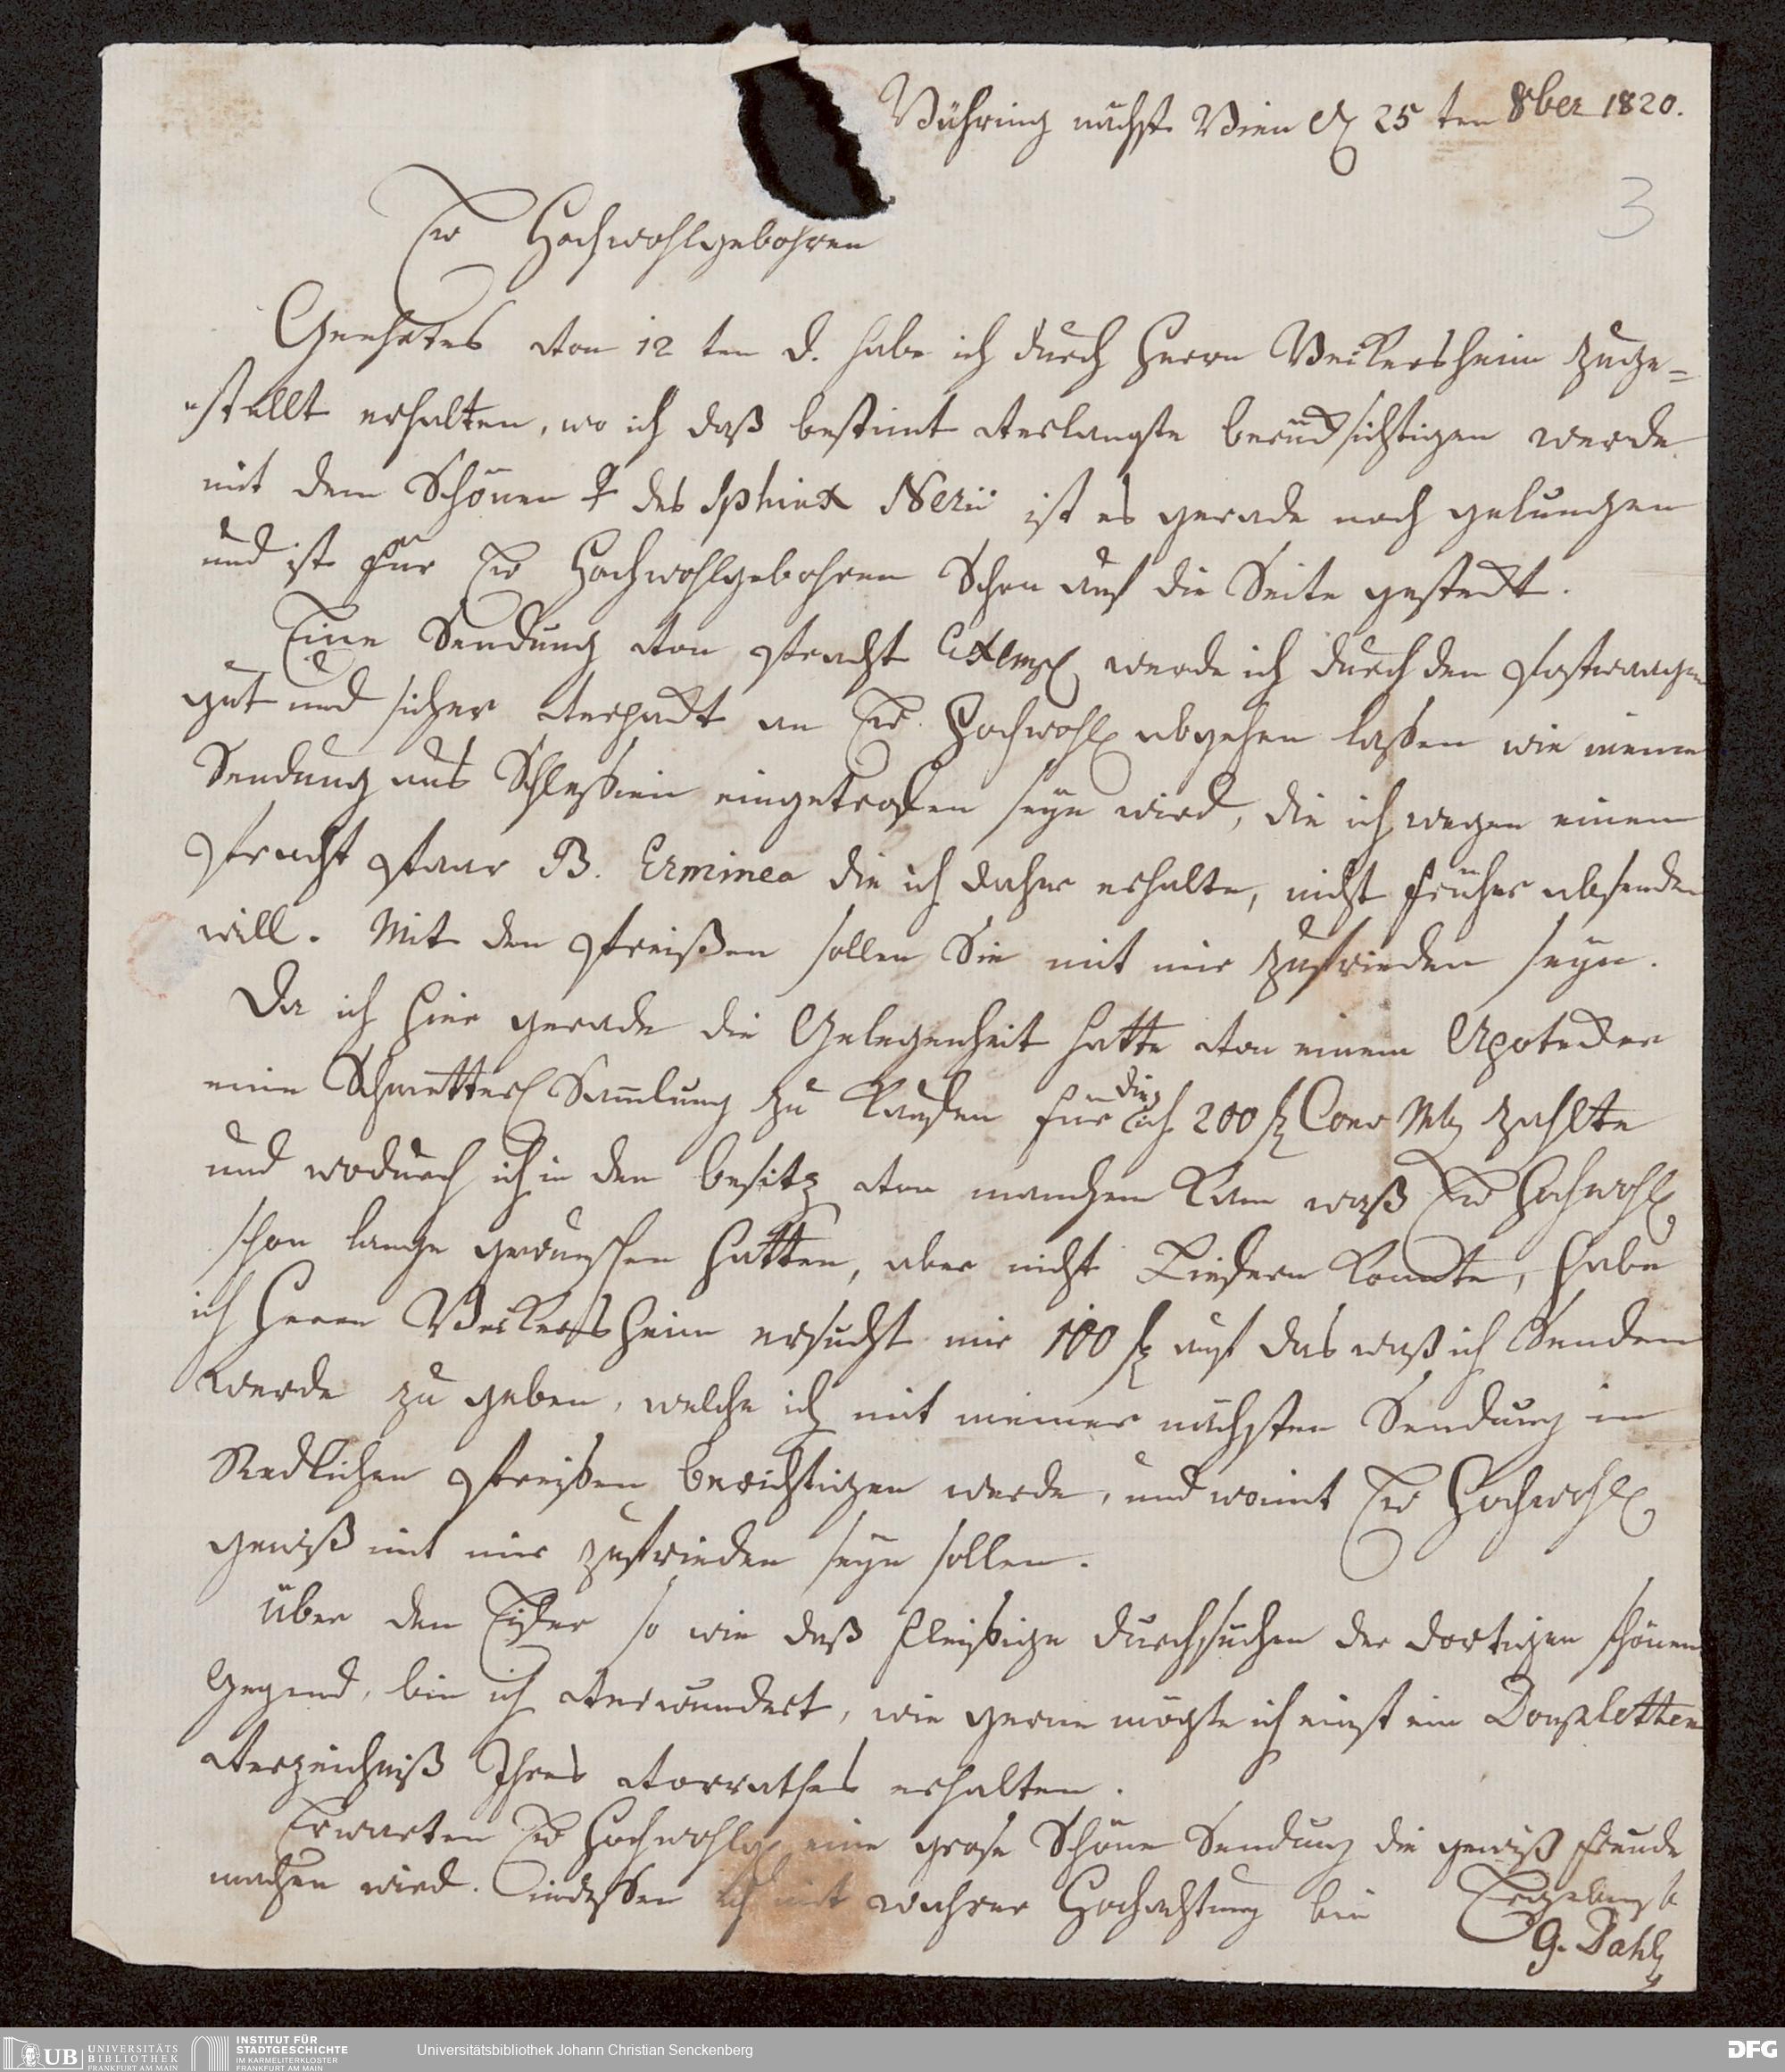 Währing nächst Wien d 25 ten 8ber 1820.
3
Ew Hochwohlgebohren
Geehrtes von 12 ten d. habe ich durch Herrn Weikersheim zuge=
"stellt erhalten, wo ich daß bestimt verlangte berücksichtigen werde
mit dem Schönen ♀ des Sphinx Nerii ist es gerade noch gelungen
und ist für Ew Hochwohlgebohren Schon auf die Seite gesteckt.
Eine Sendung von Pracht Exempl werde ich durch den Postwaagen
gut und sicher verpackt an Ew. Hochwohl abgehen laßen wie meine
Sendung aus Schleßien eingetrofen seyn wird, die ich wegen einem
Pracht Paar B. Erminea die ich daher erhalte, nicht früher absenden
will. Mit den Preißen sollen Sie mit mir zufrieden seyn.
Da ich hier gerade die Gelegenheit hatte von einem Apotecker
eine Schmetterl Samlung zu Kaufen für die ich 200 f Conv Mz zahlte
und wodurch ich in den besitz von manchem Kam waß Ew Hochwohl
schon lange gewunschen hatten, aber nicht Liefern Konnte, habe
ich Herrn Weikersheim ersucht mir 100 f auf das waß ich Senden
werde zu geben, welche ich mit meiner nächsten Sendung in
Redlichen Preißen berichtigen werde, und womit Ew Hochwohl
gewiß mit mir zufrieden seyn sollen.
über den Eifer so wie daß fleißige durchsuchen der dortigen schönen
Gegend, bin ich verwundert, wie gerne mögte ich einst ein Doupletten
verzeichniß Ihres vorrathes erhalten.
Erwarten Ew Hochwohlg eine grose Schöne Sendung die gewiß freude
machen wird. indessen ich mit wahrer Hochachtung bin Ergebenst
G. Dahl
UB UNIVERSITÄTS
BIBLIOTHEK
FRANKFURT AM MAIN
INSTITUT FÜR
STADTGESCHICHTE
IM KARMELITERKLOSTER
FRANKFURT AM MAIN
Universitätsbibliothek Johann Christian Senckenberg
DFG